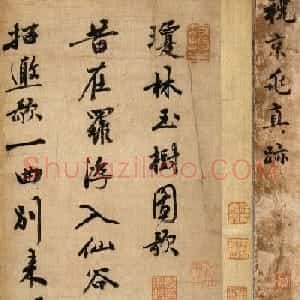 祝京兆真跡
瓊林玉樹圖歌
昔在羅浮入仙谷
招邀歌一曲別來